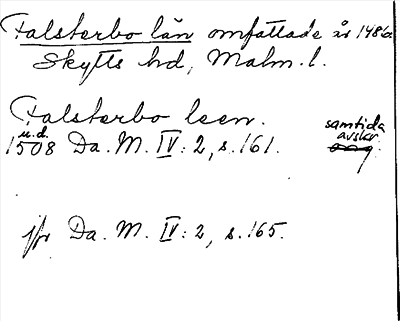 Falsterbo län omfattade år 1486
Skytts hd, Malm. l.
Falsterbo leen.
samtida
avskr.
u.d.
1508 Da. M. IV: 2, s. 161.
jfr Da. M. IV: 2, s. 165.